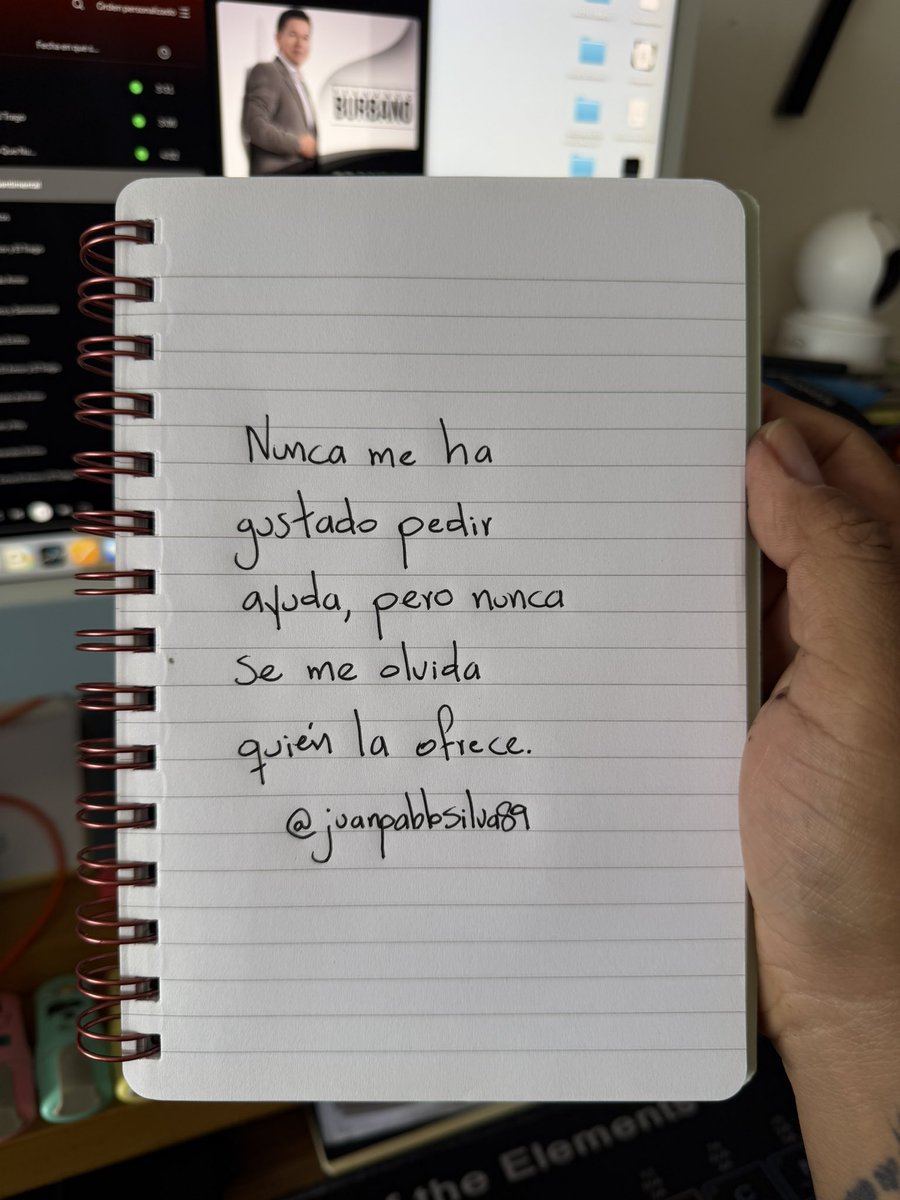 Orden personalizado
Fecha en que s...
BURBANO
Nunca me ha
gustado pedir
ayuda, pero nunca
se me olvida
quién la ofrece.
@juanpabbsilva89
of the Elements